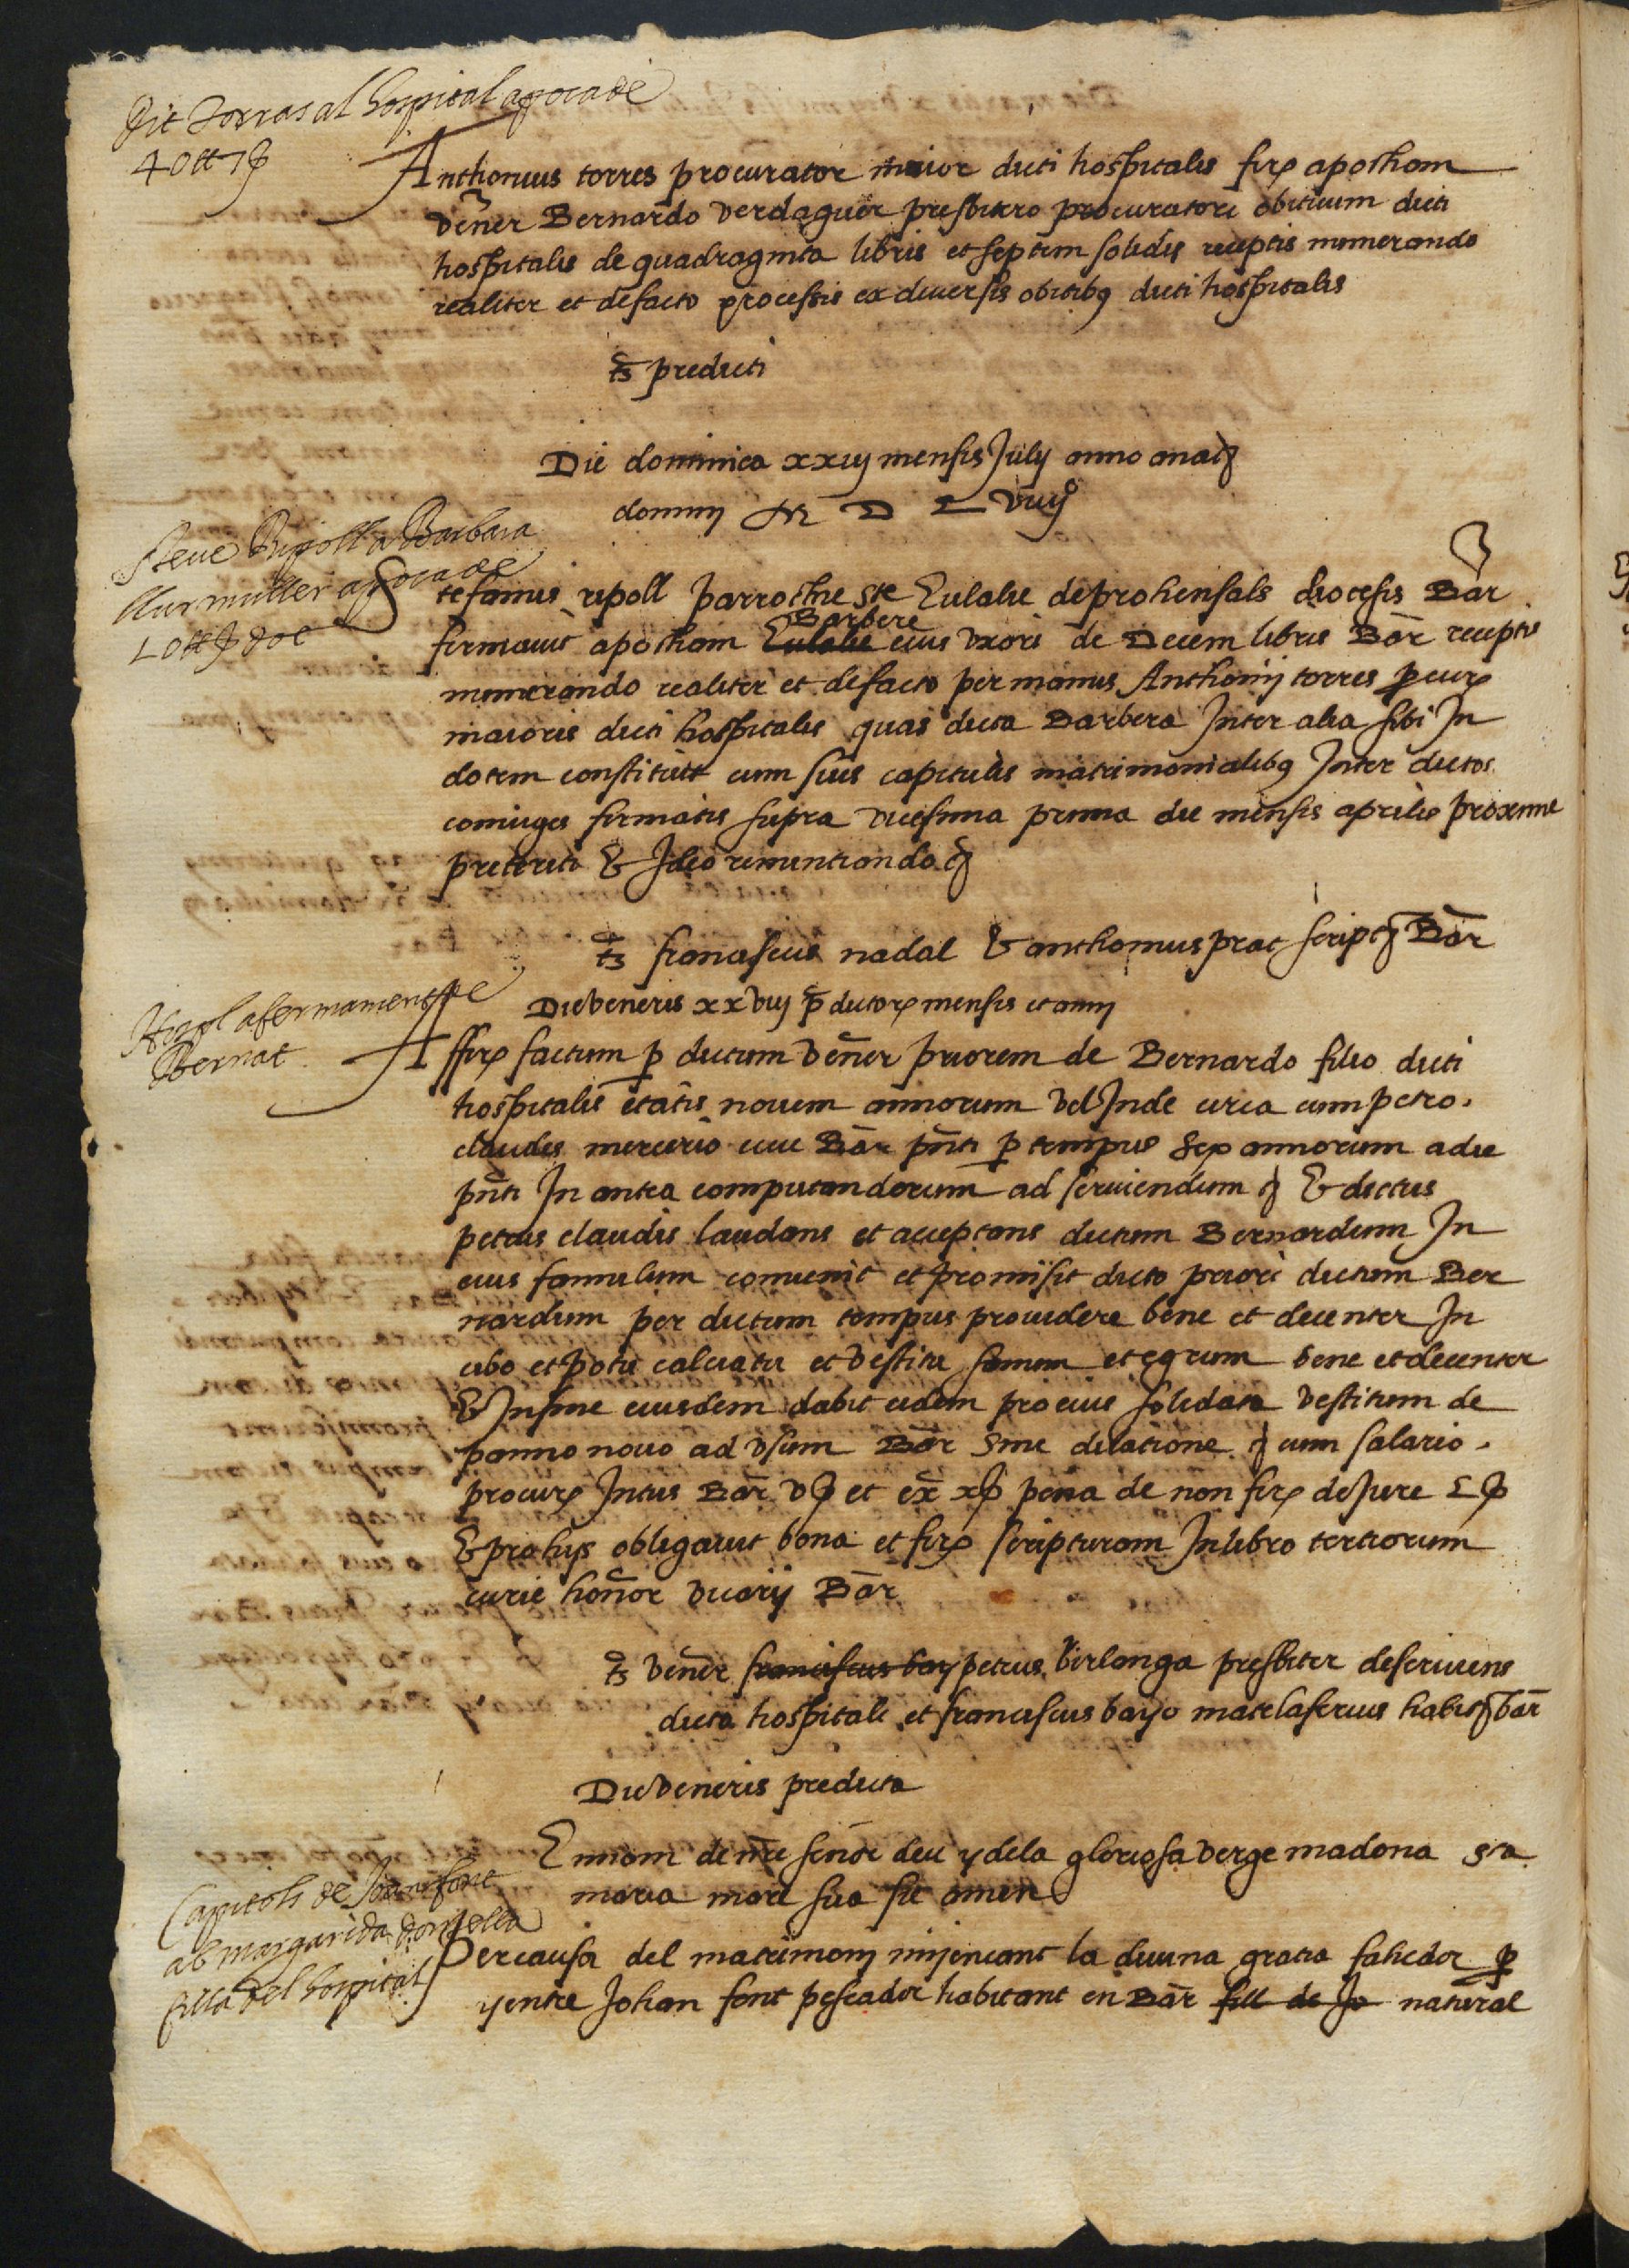 dit Torras al hospital apoca de
40 tt 7 ß
Anthonius torres procurator maior dicti hospitalis firꝫ apocham
vener̃ Bernardo verdaguer presbitero procuratori obituum dicti
hospitalis de quadraginta libris et septem solidis receptis numerando
realiter et de facto processis ex diversis obitibꝫ dicti hospitalis
t̃s predicti
Die dominica xxiiij mensis Julij anno anatꝫ
domini M D L viiijº
Steve Ripoll a Barbara
sa muller apoca de
10 tt ß dot
Stefanus ripoll parrochie Ste Eulalie de prohensals diocesis Bar̃
firmavit apocham Eulalie Barbere eius uxori de Decem libris Bar̃ receptis
numerando realiter et de facto per manus Anthonij torres ꝓcurꝫ
maioris dicti hospitalis quas dicta Barbera Inter alia sibi In
dotem constituit cum suis capitulis matrimonialibꝫ Inter dictos
coniuges firmatis supra vicesima prima die mensis aprilis proxime
preteriti & Ideo renuntiando ꝫ
t̃s franciscus nadal & anthonius prat scriptꝫ Bar̃
Die Veneris xxviiij p̃dictorꝫ mensis et anni
afermament de
Bernat
Affirꝫ factum ꝑ dictum vener̃ priorem de Bernardo filio dicti
hospitalis etatis novem annorum vel Inde circa cum petro
claudis mercerio cive Bar̃ pñti ꝑ tempus sex annorum a die
pñti In antea computandorum ad serviendum ꝫ & dictus
petrus claudis laudans et acceptans dictum Bernardum In
eius famulum convenit et promisit dicto priori dictum Ber
nardum per dictum tempus providere bene et decenter In
cibo et potu calciatu et vestitu sanum et egrum bene et decenter
& In fine eiusdem dabit eidem pro eius soldata vestitum de
panno novo ad usum Bar̃ sine dilatione ꝫ cum salario
procurꝫ Intus Bar̃ v ß et ex̃ x ß pena de non firꝫ de Jure L ß
& pro hijs obligavit bona et firꝫ scripturam In libro tertiorum
curie honor̃ vicarij Bar̃
t̃s vener̃ franciscus bay petrus virlonga presbiter deserviens
dicto hospitali et franciscus bayo matelaserius habitꝫ bar̃
Die Veneris predicta
En nom de ñre señor deu y dela gloriosa verge madona sta
maria mare sua sie amen
Capitols de Joan font
ab margarida donzella
filla del hospital
Per causa del matrimoni mijencant la divina gratia fahedor ꝑ
y entre Johan font pescador habitant en Bar̃ fill de Jo natural